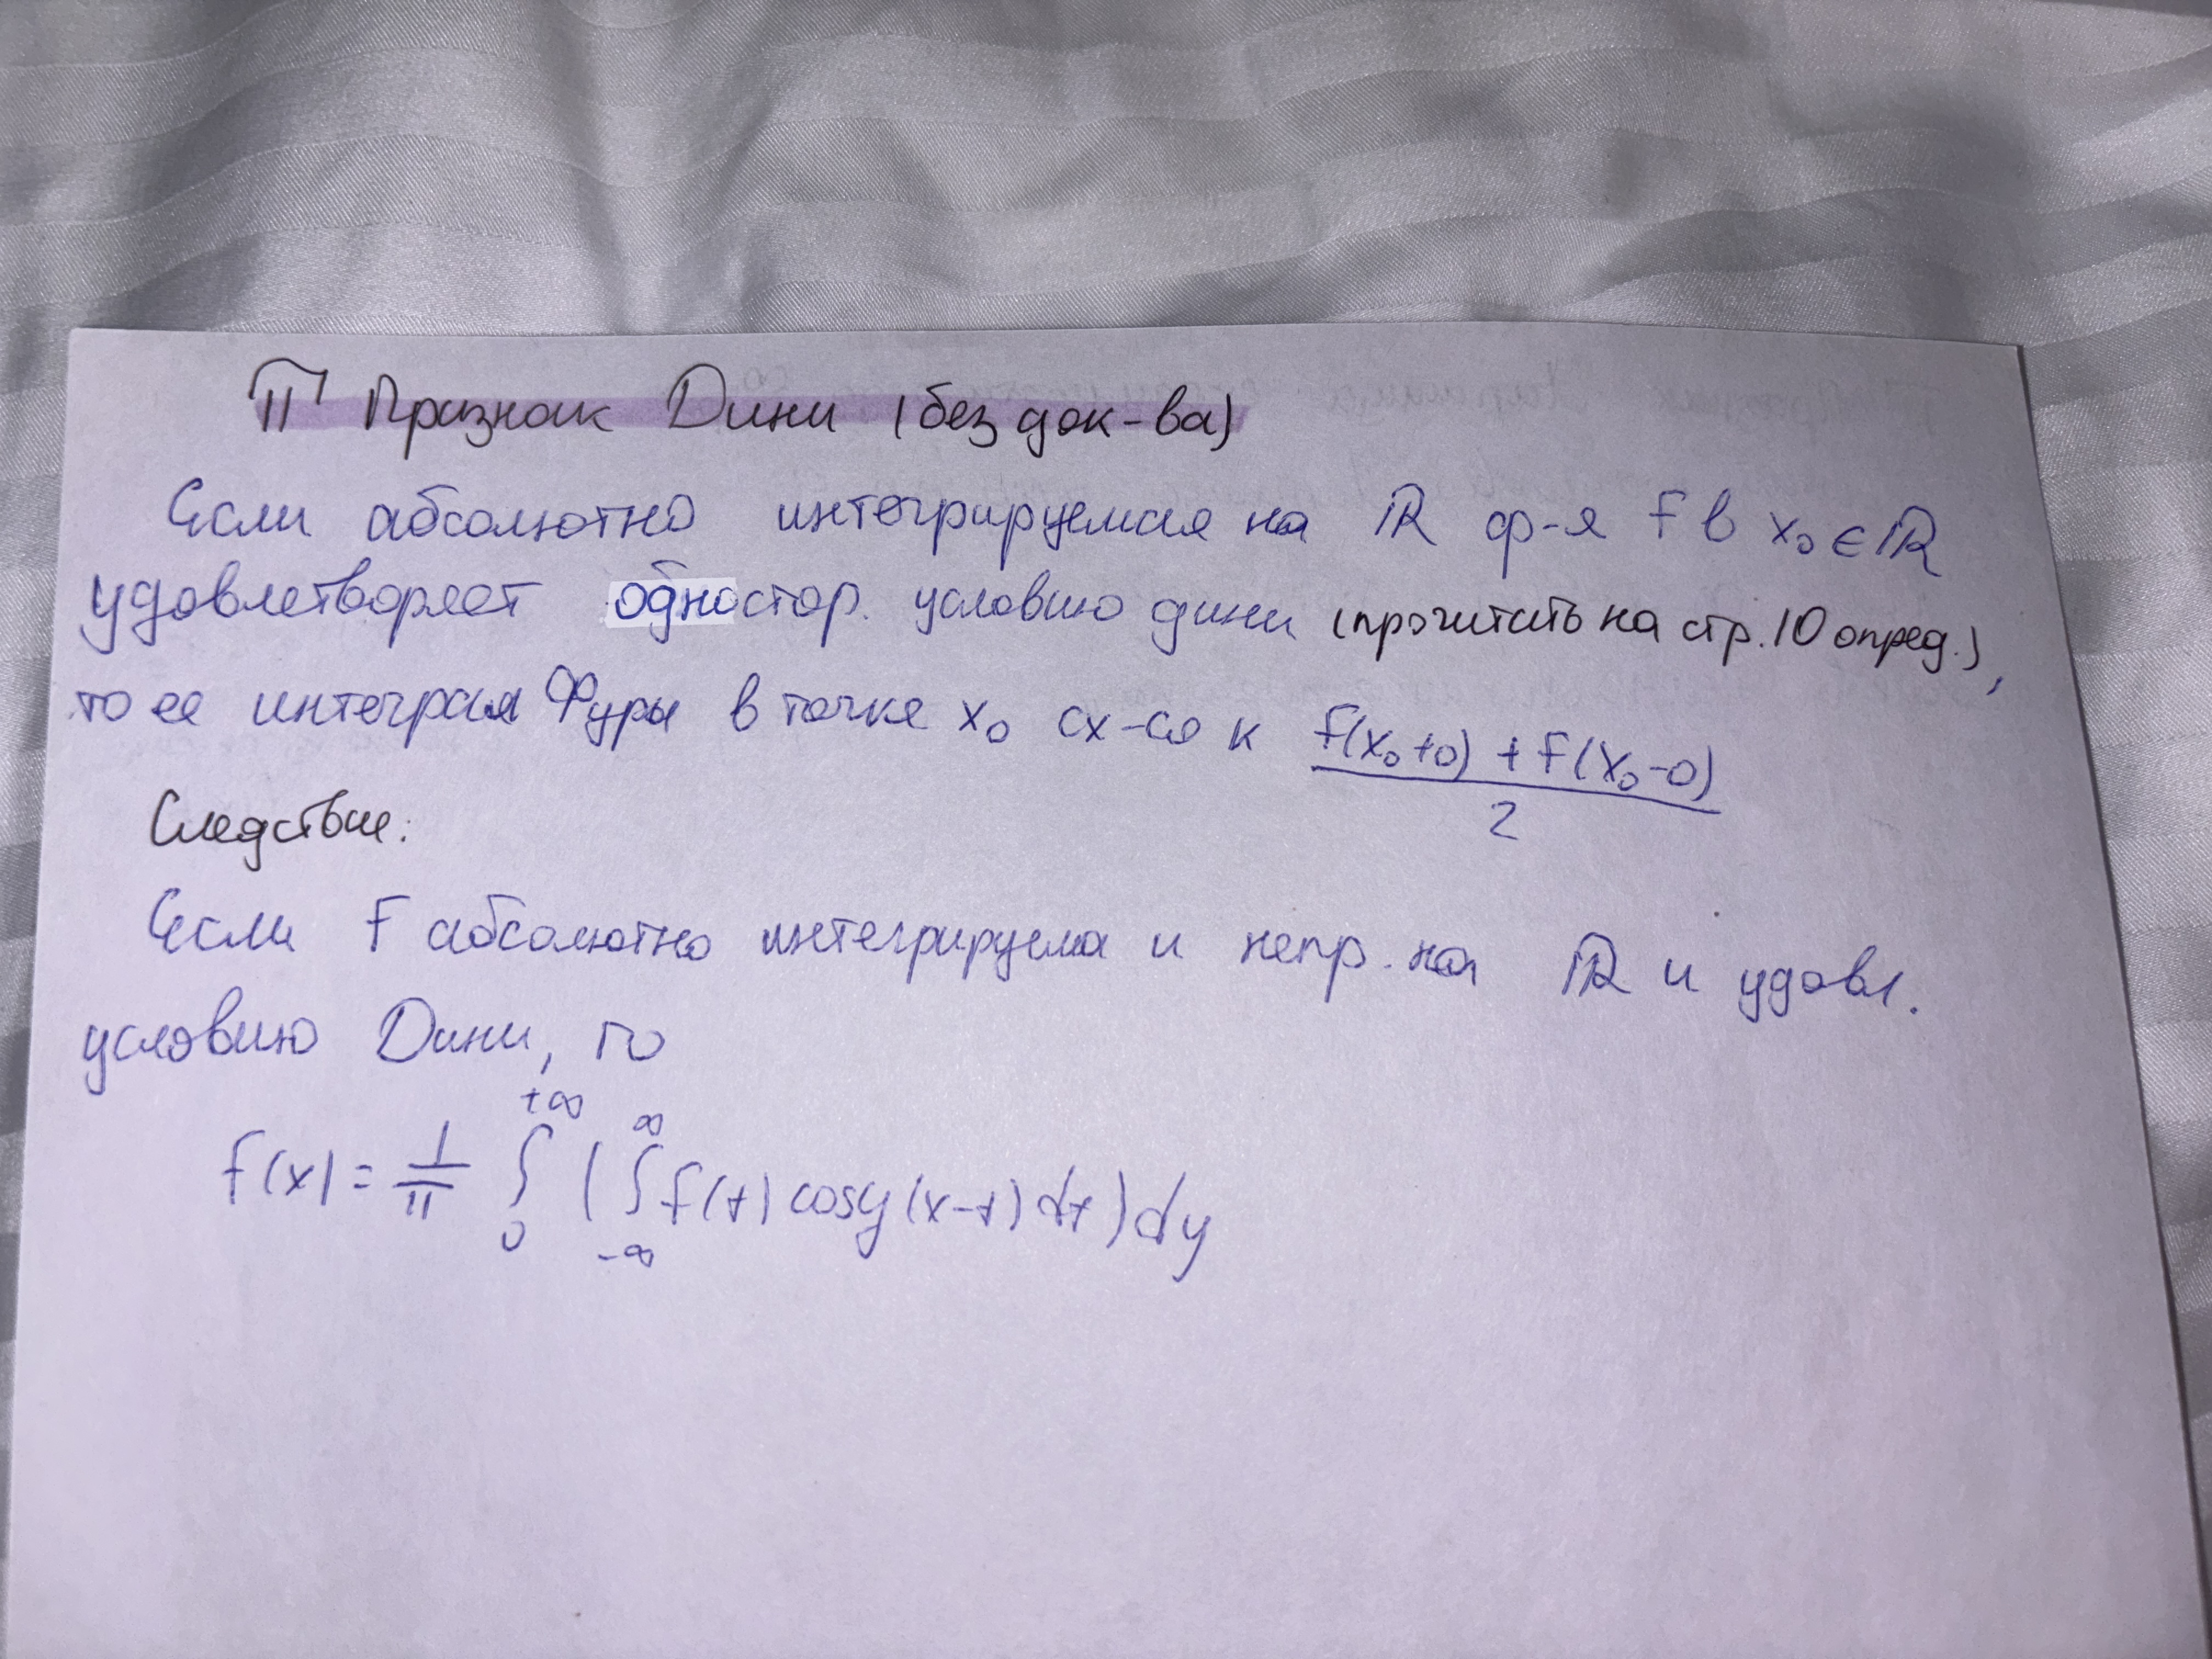 II Признак Дини (без док-ва)
Если абсолютно интегрируемая на ℝ ф-я f в x₀ ∈ ℝ
удовлетворяет одностор. условию дини (прочитать на стр. 10 опред.),
то ее интеграл Фурье в точке x₀ сх-ся к (f(x₀+0) + f(x₀-0))/2
Следствие:
Если f абсолютно интегрируема и непр. на ℝ и удовл.
условию Дини, то
f(x) = 1/π ∫₀^{+∞} (∫_{-∞}^{∞} f(t) cosy(x-t) dt) dy